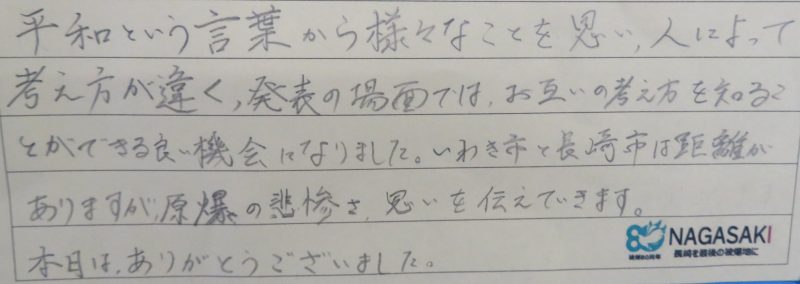 平和という言葉から様々なことを思い、人によって
考え方が違く、発表の場面では、お互いの考え方を知るこ
とができる良い機会になりました。いわき市と長崎市は距離が
ありますが、原爆の悲惨さ、思いを伝えていきます。
本日は、ありがとうございました。
80 NAGASAKI
被爆80周年 長崎を最後の被爆地に